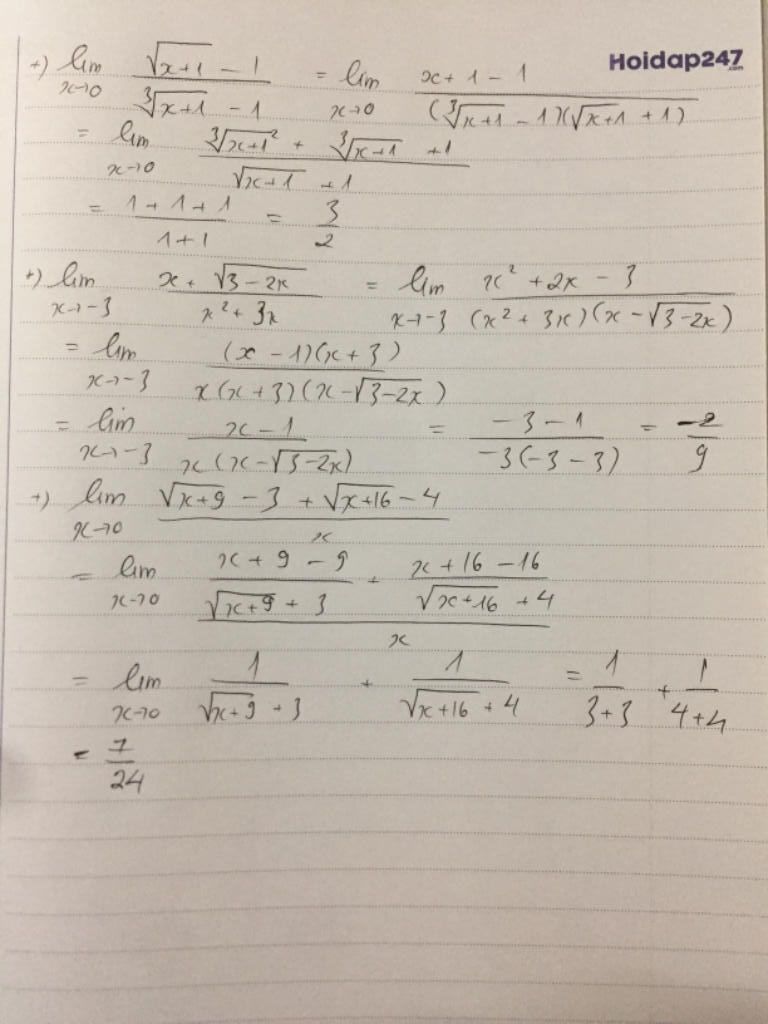 Hoidap247.com
+) lim x→0 (√(x+1) - 1)/(∛(x+1) - 1) = lim x→0 (x+1-1)/((∛(x+1) - 1)(√(x+1) + 1))
= lim x→0 (∛(x+1)² + ∛(x+1) + 1)/(√(x+1) + 1)
= (1+1+1)/(1+1) = 3/2
+) lim x→-3 (x + √(3-2x))/(x² + 3x) = lim x→-3 (x² + 2x - 3)/((x² + 3x)(x - √(3-2x)))
= lim x→-3 ((x-1)(x+3))/(x(x+3)(x-√(3-2x)))
= lim x→-3 (x-1)/(x(x-√(3-2x))) = (-3-1)/(-3(-3-3)) = -2/9
+) lim x→0 (√(x+9) - 3 + √(x+16) - 4)/x
= lim x→0 ((x+9-9)/(√(x+9) + 3) + (x+16-16)/(√(x+16) + 4))/x
= lim x→0 1/(√(x+9) + 3) + 1/(√(x+16) + 4) = 1/(3+3) + 1/(4+4)
= 7/24